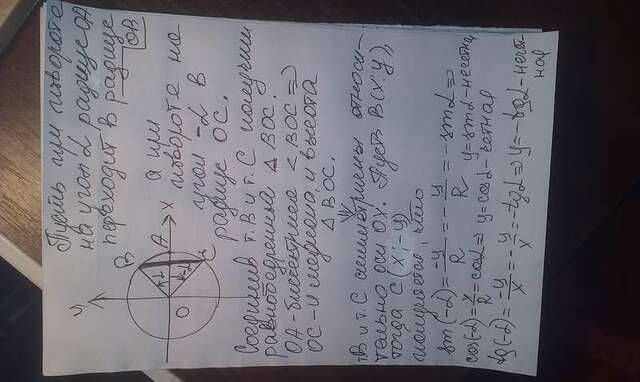 Пусть при повороте
на угол α радиус OA
переходит в радиус
OB
y
B
A
X
O
C
α
-α
а при
повороте на
угол -α в
радиус OC.
Соединив т.B и т.C получим
равнобедренный △BOC.
OA-биссектриса <BOC ⇒
OC-и медиана, и высота
△BOC.
⇓
т.B и т.C симметричны относи-
тельно оси OX. Пусть B(x;y),
тогда C(x;-y)
получается, что
sin(-α)=-y/R=-y/R=-sinα⇒
y=sinα-нечетная
cos(-α)=x/R=cosα⇒y=cosα-четная
tg(-α)=-y/x=-y/x=-tgα⇒y=-tgα-нечет-
ная